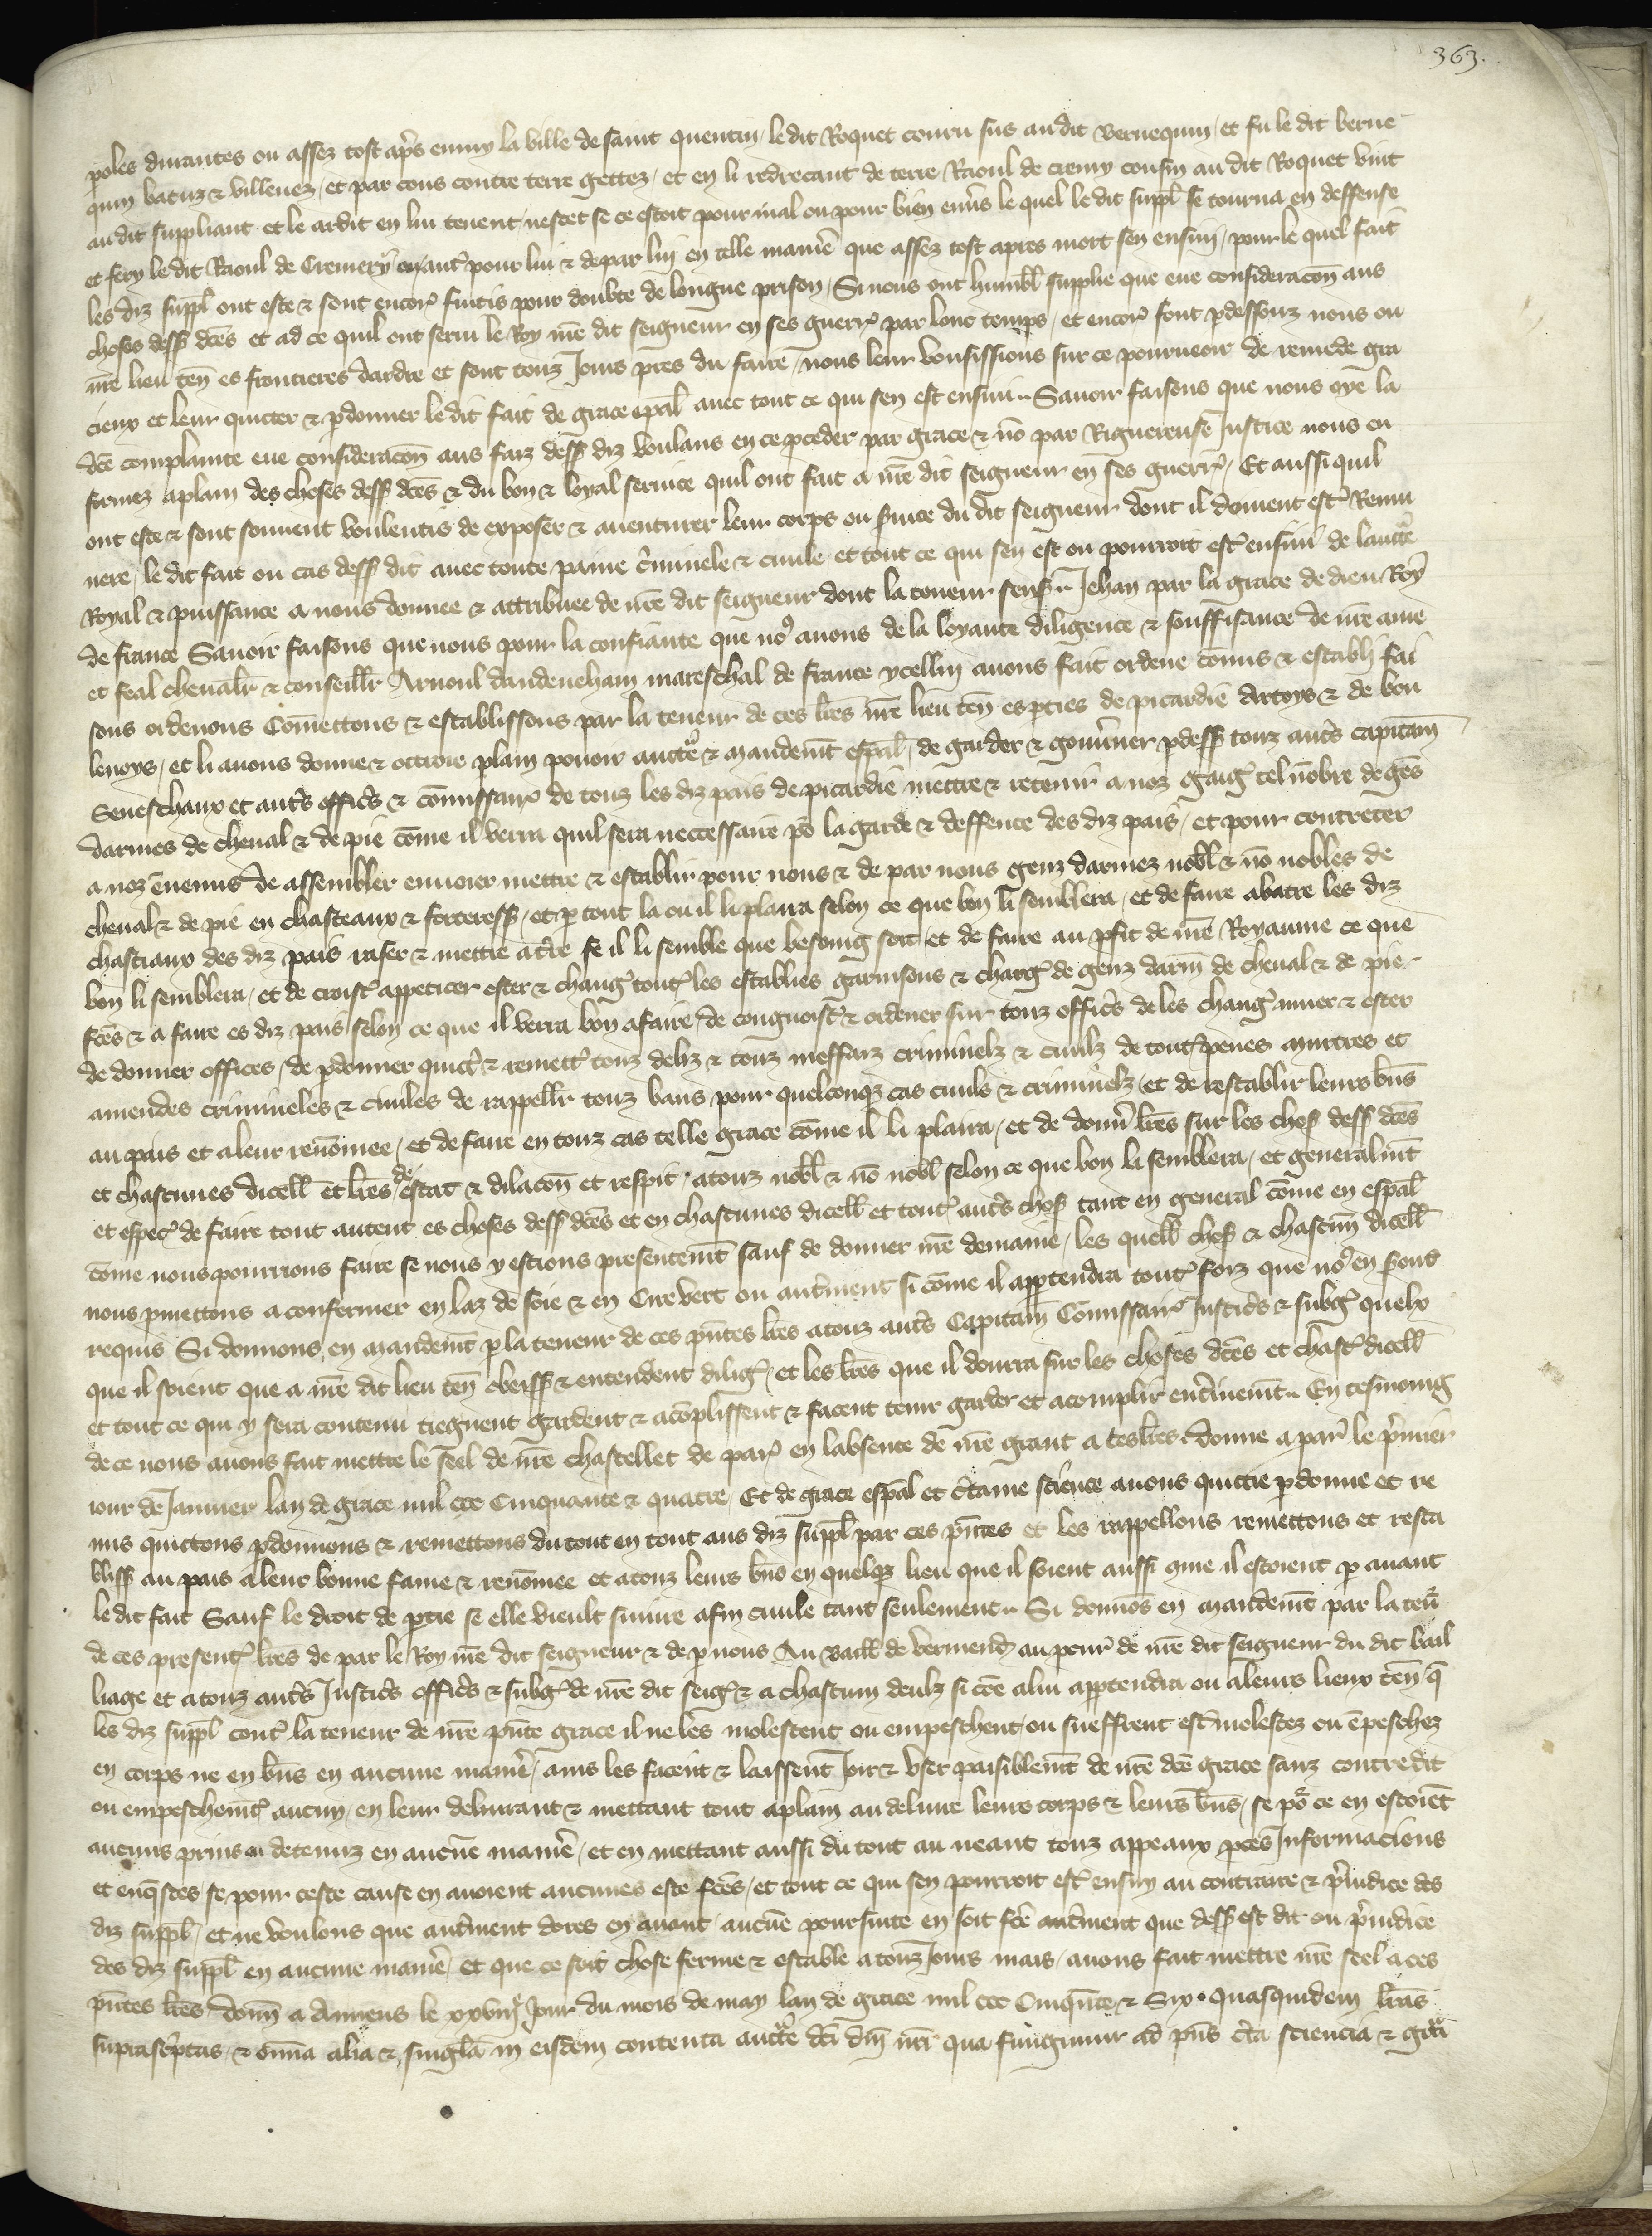 363.
poles durantes ou assez tost ap̃s enmy la ville de saint quentin / ledit Roquet couru sus audit vernequin / et fu le dit verne
quin batuz & villenez / et par cous contre terre gettez / et en li redrecant de terre Raoul de cremy cousin au dit Roquet vint
au dit suppliant et le ardit en lui tenent nescet se ce estoit pour mal ou pour bien enũs le quel ledit suppl̃ se tourna en deffense
et fery le dit Raoul de Cremery pour lui & depar luy en telle manie᷑ que assez tost apres mort sen ensuy / pour le quel fait
les diz suppl̃ ont este & sont encor᷑ fuitis pour doubte de longue prison / Si nous ont humbl̃ supplie que eue consideracõn aus
choses dess̃ dc̃es et ad ce quil ont serui le Roy nr̃e dit seigneur en ses guerr᷑ par lonc temps / et encor᷑ sont ꝑdessouz nous ou
nr̃e lieu ten̄ es frontieres dardre et sont touz Jours pr̃es du faire / nous leur vousissions sur ce pourueoir de remede gra
cieux et leur quicter & ꝑdonner ledit fait de grace esp̃al auec tout ce qui sen est ensui .. Sauoir faisons que nous oye la
dc̃e complainte eue consideracõn aus faiz dess̃ diz voulans en ce ꝓceder par grace & nõ par Riguereuse Justice nous en
formez aplain des choses dess̃ dc̃es & du bon & loyal seruice quil ont fait a nr̃e dit seigneur en ses guerr᷑ / Et aussi quil
ont este & sont souuent voulentis de exposer & auenturer leur corps ou s̃uice du dit seigneur dont il doiuent est᷑ Remu
nere / le dit fait ou cas dess̃ dit auec toute paine c̃iminele & ciuile et tout ce qui sen est ou pourroit est᷑ ensui de lauct̃e
Royal & puissance a nous donnee & attribuee de nr̃e dit seigneur dont la teneur sens̃ .. Jehan par la grace de dieu Roy
de france Sauoir faisons que nous pour la confiance que no᷒ auons de la loyaute diligence & souffisance de nr̃e ame
et feal cheualr̃ & conseillr̃ Arnoul dandeneham mareschal de france ycelluy auons fait ordene cõmis & establi fai
sons ordenons Cõmettons & establissons par la teneur de ces lr̃es nr̃e lieu ten̄ es ꝑties de picardie Artoys & de bou
lenoys / et li auons donne & octroie plain pouoir auct̃e & mandem̃t esp̃al / de garder & gouũner ꝑdess̃ touz aut̃s capitain̄
Seneschaux et aut̃s offic̃s & cõmissair᷑ de touz les diz pais de picardie mettre & retenir a noz gaig̃ tel nõbre de gẽs
darmes de cheual & de pie cõme il verra quil sera neccessaire põ la garde & deffence des diz pais / et pour contreter
a noz ẽnemis de assembler enuoier mettre & establir pour nous & de par nous genz darmez nobl̃ & nõ nobles de
cheual & de pie en chasteaux & forteress̃ / et ꝑ tout la ou il li plaira selon ce que bon li semblera / et de faire abatre les diz
chastiaux des diz pais raser & mettre at̃re se il li semble que besoing soit / et de faire au ꝓfit de nr̃e Royaume ce que
bon li semblera / et de croist᷑ appeticer oster & chang̃ tout᷑ les establies garnisons & charg̃ de genz darm̃ de cheual & de pie
fc̃es & a faire es diz pais selon ce que il verra bon afaire / de congnoist᷑ & ordener sur touz offic̃s de les chang̃ muer & oster
de donner offices / de ꝑdonner quict᷑ & remett᷑ touz deliz & touz meffaiz criminelz & ciuilz de tout᷑ penes murtres et
amendes crimineles & ciuiles de rappellr̃ touz bans / pour quelconqz cas ciuils & criminelz / et de restablir leurs bñs
au pais et aleur renõmee / et de faire en touz cas telle grace cõme il li plaira / et de donñ lr̃es sur les chos̃ dess̃ dc̃es
et chascunes dicell̃ et lr̃es de estat & dilacõn et respit . atouz nobl̃ & nõ nobl̃ selon ce que bon li semblera / et generalm̃t
et espec᷑ de faire tout autent es choses dess̃ dc̃es et en chascunes dicell̃ et tout᷑ aut̃s chos̃ tant en general cõme en esp̃al
cõme nous pourrions faire se nous y estions presentem̃t sauf de donner nr̃e demaine / les quell̃ chos̃ & chascun̄ dicell̃
nous ꝓmettons a confermer en laz de soie & en Cire vert ou autm̃ent si cõme il appartendra tout᷑ foiz que no᷒ en s̃ont
requis Si donnons en mandem̃t ꝑ la teneur de ces pñtes lr̃es atouz aut̃s Capitain̄ Cõmissair᷑ Justic̃s & subg̃ quelx
que il soient que a nr̃e dit lieu ten̄ obeiss̃ & entendent dilig̃ / et les lr̃es que il donra sur les choses dc̃es et chasc᷑ dicell̃
et tout ce qui y sera contenu tiegnent gardent & acõplissent & facent tenir garder et acomplir ent̃inem̃t .. En tesmoing
de ce nous auons fait mettre le seel de nr̃e chastellet de par᷑ en labsence de nr̃e grant a ces lr̃es . donne a par᷑ le p̃mier
iour de Januier lan de grace mil ccc Cinquante & quatre / Et de grace esp̃al et c̃taine science auons quictie ꝑdonne et re
mis quittons ꝑdonnons & remettons du tout en tout aus diz suppl̃ par ces pñtes et les rappellons remettons et resta
bliss̃ au pais aleur bonne fame & renõmee et atouz leurs bñs en quelqz lieu que il soient aussi cõme il estoient ꝑ auant
le dit fait Sauf le droit de ꝑtie se elle vieult suiure afin ciuile tant seulement .. Si donnõs en mandem̃t par la teñ
de ces present᷑ lr̃es de par le Roy nr̃e dit seigneur & de ꝑ nous Au baill̃ de vermend̃ au pcur̃ de nr̃e dit seigneur du dit bail
liage et atouz aut̃s Justic̃s offic̃s & subg̃ de nr̃e dit seig̃ & a chascun deulz si cõe alui appartendra ou aleurs lieux ten̄ q̃
les diz suppl̃ cont᷑ la teneur de nr̃e pñte grace il ne les molestent ou empeschent / ou sueffrent est᷑ molestez ou ẽpeschez
en corps ne en bñs en aucune manie᷑ / ains les facent & laissent Joir & vser paisiblem̃t de nr̃e dc̃e grace sanz contredit
ou empeschem̃t᷑ aucun / en leur deliurant & mettant tout aplain au deliure leurs corps & leurs bñs / se põ ce en estoiẽt
aucuns prins ou detenuz en aucũe manie᷑ / et en mettant aussi du tout au neant touz appeaux ꝓces Jnformacions
et enq̃stes se pour ceste cause en auoient aucunes este fc̃es / et tout ce qui sen pourroit est᷑ ensuy au contraire & p̃iudice des
diz suppl̃ / et ne voulons que autm̃ent dores en auant aucũe poursuite en soit fc̃e autm̃ent que dess̃ est dit ou p̃iudice
des diz suppl̃ en aucune manie᷑ / et que ce soit chose ferme & estable a touz Jours mais / auons fait mettre nr̃e seel a ces
pñtes lr̃es / donn̄ a Amiens le xxviij᷑ Jour du mois de may lan de grace mil ccc Cinqũte & Six . Quasquidem lr̃as
suprasc̃ptas & om̃ia alia & singl̃a in eisdem contenta auct̃e dc̃i dñi nr̃i qua fungimur ad pñs c̃ta sciencia & gr̃a